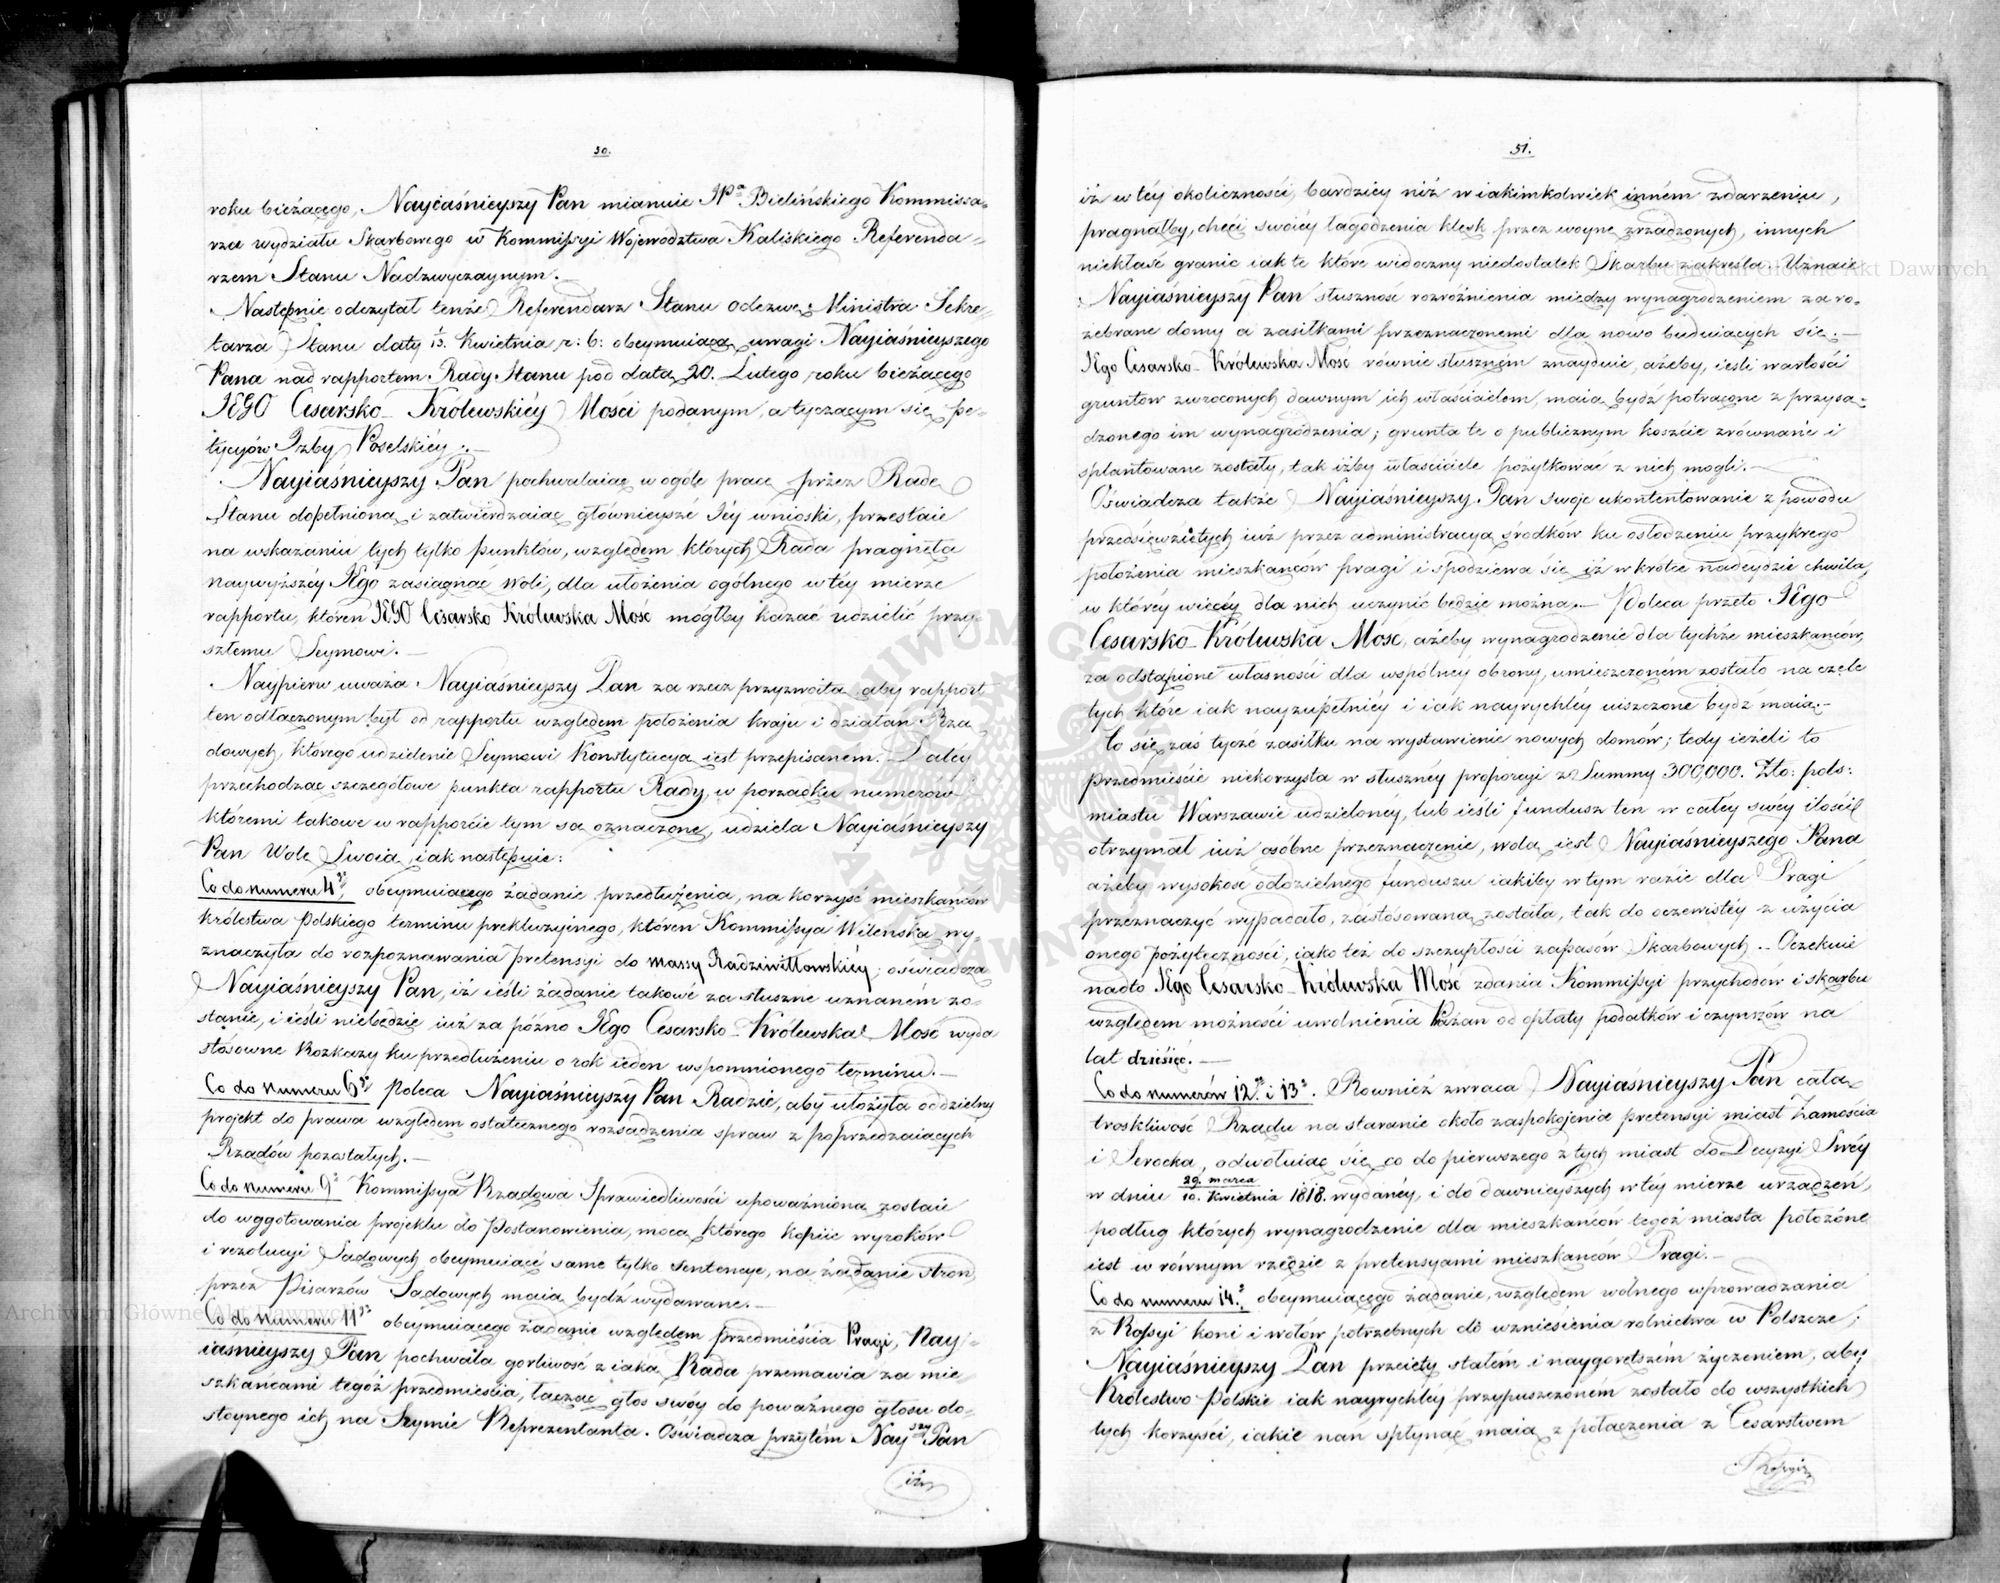 50.
roku bieżącego, Nayiaśnieyszy Pan mianuie JPa Bielińskiego Kommissa-
rza wydziału Skarbowego w Kommissyi Województwa Kaliskiego Referenda-
rzem Stanu Nadzwyczaynym.—
Następnie odczytał tenże Referendarz Stanu odezwę Ministra Sekre-
tarza Stanu daty 1/13. Kwietnia r: b: obeymuiącą uwagi Nayiaśnieyszego
Pana nad rapportem Rady Stanu pod datą 20. Lutego roku bieżącego
JEGO Cesarsko-Królewskiéy Mości podanym, a tyczącym się pe-
tycyów Izby Poselskiéy.—
Nayiaśnieyszy Pan pochwalaiąc w ogóle pracę przez Radę
Stanu dopełnioną i zatwierdzaiąc główniejsze Jéy wnioski, przestaie
na wskazaniu tych tylko punktów, względem których Rada pragnęła
naywyższéy JEgo zasiągnąć woli, dla ułożenia ogólnego w téy mierze
rapportu, któren JEGO Cesarsko Królewska Mość mógłby kazać udzielić przy-
szłemu Seymowi.—
Naypierw uważa Nayiaśnieyszy Pan za rzecz przyzwoitą aby rapport
ten odłączonym był od rapportu względem położenia kraju i działań Rzą-
dowych, którego udzielenie Seymowi Konstytucyą iest przepisanem. Daléy
przechodząc szczegółowe punkta rapportu Rady, w porządku numerów
któremi takowe w rapporcie tym są oznaczone, udziela Nayiaśnieyszy
Pan Wolę Swoią, iak następuie:
Co do numeru 4go obeymuiącego żądanie przedłużenia, na korzyść mieszkańców
królestwa Polskiego terminu prekluzyinego, któren Kommissya Wileńska wy-
znaczyła do rozpoznawania pretensyi do massy Radziwiłłowskiéy; oświadcza
Nayiaśnieyszy Pan, iż ieśli żądanie takowe za słuszne uznaném zo-
stanie, i ieśli niebędzie iuż za późno JEgo Cesarsko-Królewska Mość wyda
stosowne Rozkazy ku przedłużeniu o rok ieden wspomnionego terminu.—
Co do numeru 6go Poleca Nayiaśnieyszy Pan Radzie, aby ułożyła oddzielny
projekt do prawa względem ostatecznego rozsądzenia spraw z poprzedzaiących
Rządów pozostałych.—
Co do numeru 9o Kommissya Rządowa Sprawiedliwości upoważnioną zostaie
do wygotowania projektu do Postanowienia, mocą którego kopiie wyroków
i rezolucyi Sądowych obeymuiące same tylko sentencye, na żądanie stron
przez Pisarzów Sądowych maią bydź wydawane.—
Co do numeru 11go obeymuiącego żądanie względem przedmieścia Pragi, Nay-
iaśnieyszy Pan pochwala gorliwość z iaką Rada przemawia za mie-
szkańcami tegóż przedmieścia, łącząc głos swóy do poważnego głosu do-
stoynego ich na Seymie Reprezentanta. Oświadcza przytém Nayszy Pan
iż
51.
iż w téy okoliczności, bardziey niż w iakimkolwiek inném zdarzeniu,
pragnąłby, chęci swoiéy łagodzenia klęsk przez woynę zrządzonych, innych
niekłaść granic iak te które widoczny niedostatek Skarbu zakreśla. Uznaie
Nayiaśnieyszy Pan słuszność rozróżnienia między wynagrodzeniem za ro-
zebrane domy a zasiłkami przeznaczonemi dla nowo buduiących się.—
JEgo Cesarsko-Królewska Mość równie słuszném znayduie, ażeby, ieśli wartości
gruntów zwróconych dawnym ich właścicielom, maią bydź potrącone z przysą-
dzonego im wynagrodzenia; grunta te o publicznym koszcie zrównane i
splantowane zostały, tak iżby właściciele pożytkować z nich mogli.—
Oświadcza także Nayiaśnieyszy Pan swoje ukontentowanie z powodu
przedsięwziętych iuż przez administracyą środków ku osłodzeniu przykrego
położenia mieszkańców Pragi i spodziewa się iż wkrótce nadeydzie chwila,
w któréy więcéy dla nich uczynić będzie można.— Poleca przeto JEgo
Cesarsko-Królewska Mość, ażeby wynagrodzenie dla tychże mieszkańców,
za odstąpione własności dla wspólney obrony, umieszczoném zostało na czele
tych które iak nayzupełniéy i iak nayrychléy uiszczone bydź maią.—
Co się zaś tycze zasiłku na wystawienie nowych domów; tedy ieżeli to
przedmieście niekorzysta w słusznéy proporcyi z Summy 300,000. Złto: pols:
miastu Warszawie udzielonéy, lub ieśli fundusz ten w całey swéy ilości
otrzymał iuż osóbne przeznaczenie, wolą iest Nayiaśnieyszego Pana
ażeby wysokość oddzielnego funduszu iakiby w tym razie dla Pragi
przeznaczyć wypadało, zastósowaną została, tak do oczewistéy z użycia
onego pożyteczności, iako też do szczupłości zapasów Skarbowych.— Oczekuie
nadto JEgo Cesarsko-Królewska Mość zdania Kommissyi przychodów i skarbu
względem możności uwolnienia Prażan od opłaty podatków i czynszów na
lat dziesięć.—
Co do numerów 12go i 13o. Rownież zwraca Nayiaśnieyszy Pan całą
troskliwość Rządu na staranie około zaspokojenia pretensyi miast Zamościa
i Serocka, odwołuiąc się co do pierwszego z tych miast do Decyzyi Swéy
w dniu 29. marca / 10. Kwietnia 1818. wydanéy, i do dawnieyszych w téy mierze urządzeń,
podług których wynagrodzenie dla mieszkańców tegoż miasta położone
iest w równym rzędzie z pretensyami mieszkańców Pragi.—
Co do numeru 14.o obeymuiącego żądanie, względem wolnego wprowadzania
z Rossyi koni i wołów potrzebnych do wzniesienia rolnictwa w Polszcze;
Nayiaśnieyszy Pan przeięty stałém i naygorętszém życzeniem, aby
Królestwo Polskie iak nayrychléy przypuszczoném zostało do wszystkich
tych korzyści, iakie nań spłynąć maią z połączenia z Cesarstwem
Rossyis
Archiwum Główne Akt Dawnych
Archiwum Główne Akt Dawnych